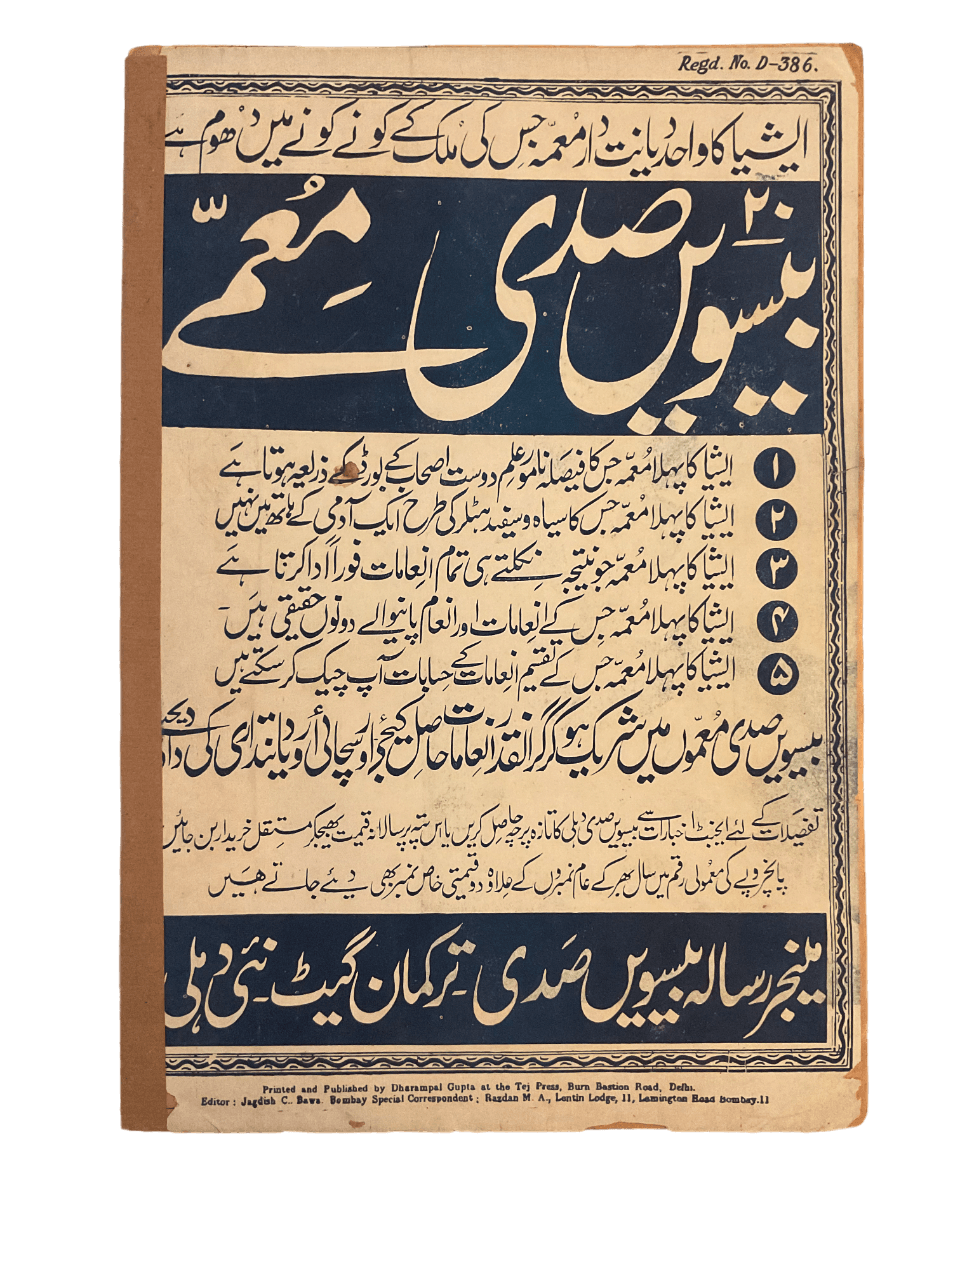 Regd. No. D-386.
ایشیا کا واحد دیانت دار معمّہ جس کی ملک کے کونے کونے میں دھوم ہے
۲۰
بیسویں صدی مُعمّے
۱ ایشیا کا پہلا مُعمّہ جس کا فیصلہ نامور علم دوست اصحاب کے بورڈ کے ذریعہ ہوتا ہے
۲ ایشیا کا پہلا مُعمّہ جس کا سیاہ و سفید ہٹلر کی طرح ایک آدمی کے ہاتھ میں نہیں
۳ ایشیا کا پہلا مُعمّہ جو نتیجہ نکلتے ہی تمام اِنعامات فوراً ادا کرتا ہے
۴ ایشیا کا پہلا مُعمّہ جس کے اِنعامات اور انعام پانیوالے دونوں حقیقی ہیں۔
۵ ایشیا کا پہلا مُعمّہ جس کے تقسیم اِنعامات کے حسابات آپ چیک کر سکتے ہیں
بیسویں صدی مُعمّوں میں شریک ہو کر گرانقدر انعامات حاصل کیجئے اور سچائی اور دیانتداری کی داد دیجئے
تفصیلات کے لئے ایجنٹ اخبارات سے بیسویں صدی دہلی کا تازہ پرچہ حاصل کریں یا اس پتہ پر سالانہ قیمت بھیجکر مستقل خریدار بن جائیں
پانچ روپے کی معمولی رقم میں سال بھر کے عام نمبروں کے علاوہ دو قیمتی خاص نمبر بھی دیئے جاتے ہیں
مینجر رسالہ بیسویں صَدی۔ ترکمان گیٹ۔ نئی دہلی
Printed and Published by Dharampal Gupta at the Tej Press, Burn Bastion Road, Delhi.
Editor : Jagdish C. Bawa. Bombay Special Correspondent ; Razdan M. A., Lentin Lodge, 11, Lamington Road Bombay.11